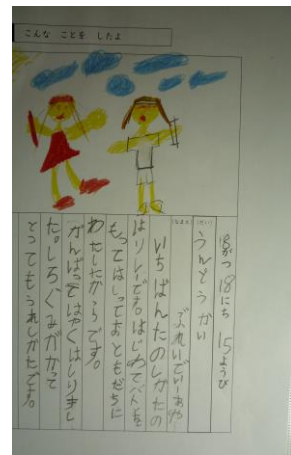 こんな ことを したよ
18にち
うんどうかい
いちばんたのしかたの
はりレーです。はじめてバトンを
もってはしっておともだちに
わたしたからです。
がんばってはやくはしりまし
た。しろぐみがかって
とってもうれしかたです。